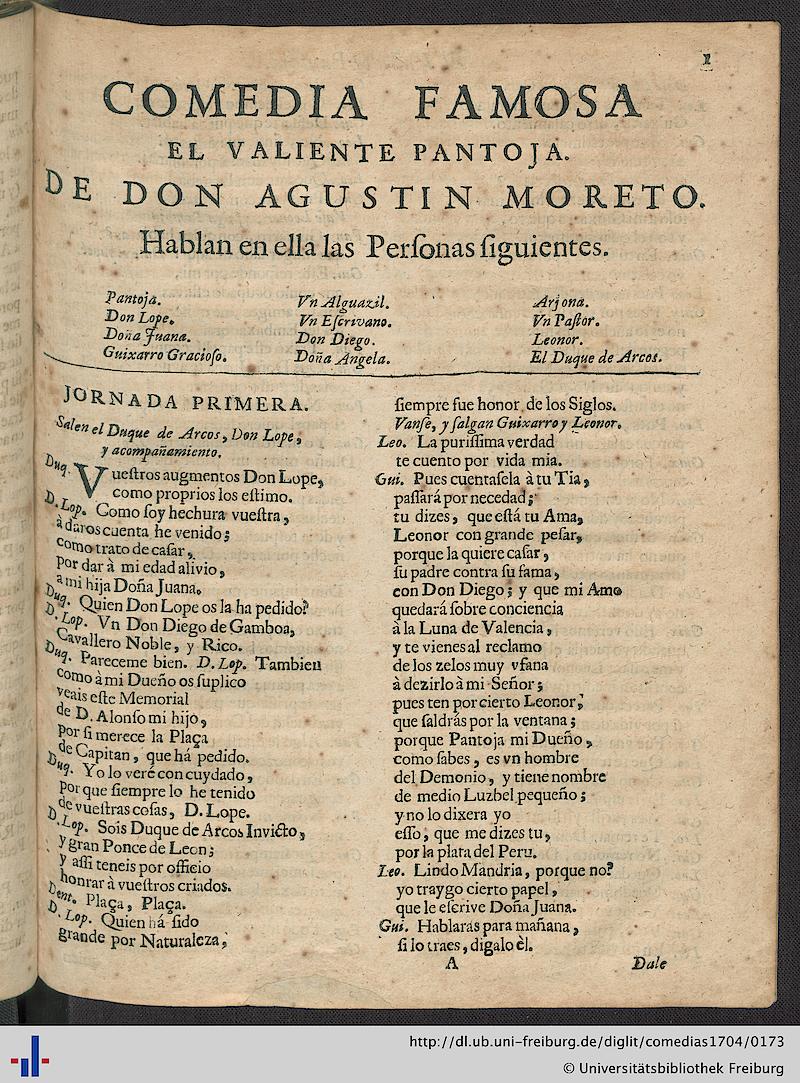 1
COMEDIA FAMOSA
EL VALIENTE PANTOJA.
DE DON AGUSTIN MORETO.
Hablan en ella las Perſonas ſiguientes.
Pantoja.
Don Lope.
Doña Juana.
Guixarro Gracioſo.
Vn Alguazil.
Vn Eſcrivano.
Don Diego.
Doña Angela.
Arjona.
Vn Paſtor.
Leonor.
El Duque de Arcos.
JORNADA PRIMERA.
Salen el Duque de Arcos, Don Lope,
y acompañamiento.
Duq. Vueſtros augmentos Don Lope,
como proprios los eſtimo.
D. Lop. Como ſoy hechura vueſtra,
à daros cuenta he venido;
como trato de caſar,
por dar à mi edad alivio,
a mi hija Doña Juana.
Duq. Quien Don Lope os la ha pedido?
D. Lop. Vn Don Diego de Gamboa,
Cavallero Noble, y Rico.
Duq. Pareceme bien. D. Lop. Tambien
como à mi Dueño os ſuplico
veais eſte Memorial
de D. Alonſo mi hijo,
por ſi merece la Plaça
de Capitan, que há pedido.
Duq. Yo lo veré con cuydado,
por que ſiempre lo he tenido
de vueſtras coſas, D. Lope.
D. Lop. Sois Duque de Arcos Invicto,
y gran Ponce de Leon;
y aſſi teneis por officio
honrar à vueſtros criados.
Dent. Plaça, Plaça.
D. Lop. Quien há ſido
grande por Naturaleza,
ſiempre fue honor de los Siglos.
Vanſe, y ſalgan Guixarro y Leonor.
Leo. La puriſſima verdad
te cuento por vida mia.
Gui. Pues cuentaſela à tu Tia,
paſſará por necedad;
tu dizes, que eſtá tu Ama,
Leonor con grande peſar,
porque la quiere caſar,
ſu padre contra ſu fama,
con Don Diego; y que mi Amo
quedará ſobre conciencia
à la Luna de Valencia,
y te vienes al reclamo
de los zelos muy vfana
à dezirlo à mi Señor;
pues ten por cierto Leonor,
que ſaldrás por la ventana;
porque Pantoja mi Dueño,
como ſabes, es vn hombre
del Demonio, y tiene nombre
de medio Luzbel pequeño;
y no lo dixera yo
eſſo, que me dizes tu,
por la plata del Peru.
Leo. Lindo Mandria, porque no?
yo traygo cierto papel,
que le eſcrive Doña Juana.
Gui. Hablarás para mañana,
ſi lo traes, digalo èl.
A
Dale
http://dl.ub.uni-freiburg.de/diglit/comedias1704/0173
© Universitätsbibliothek Freiburg